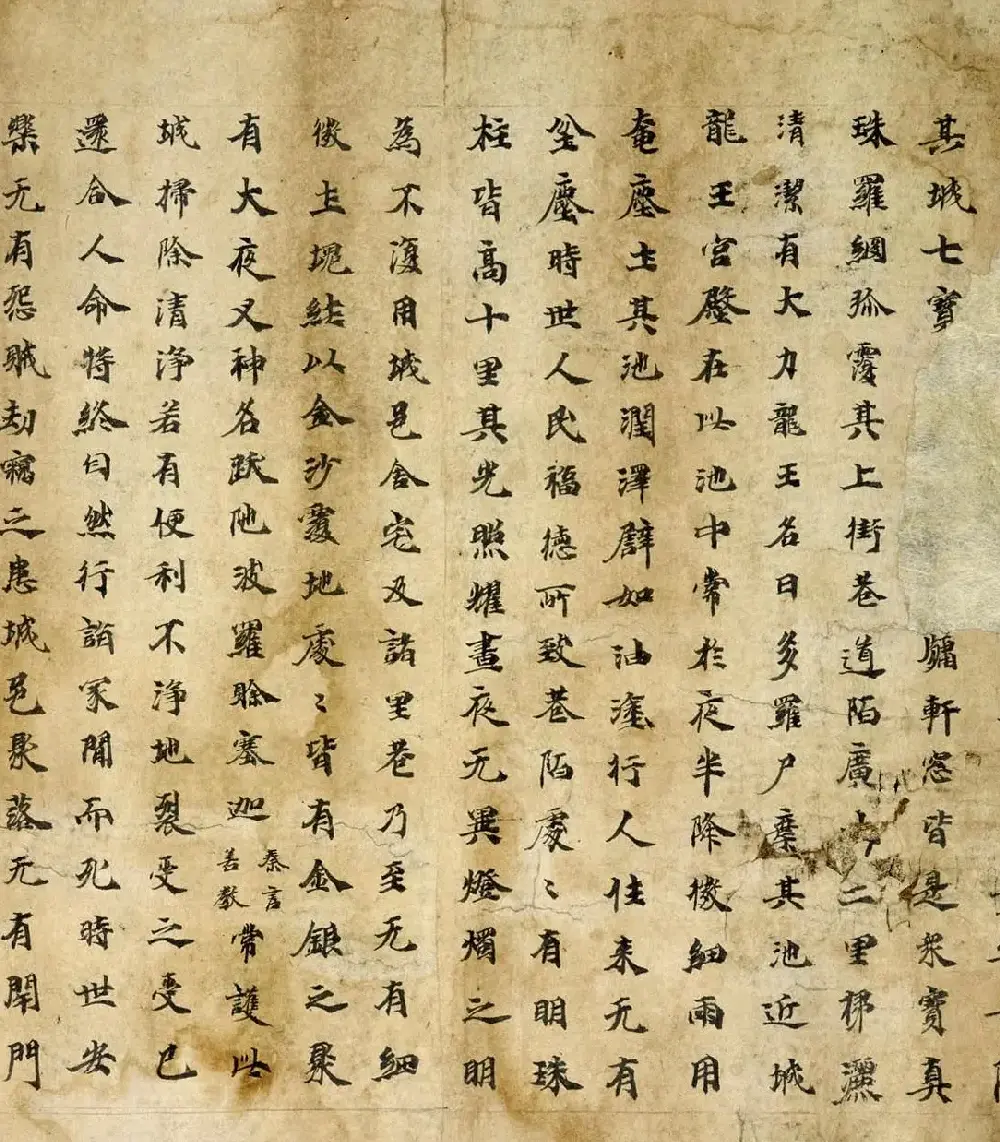 其城七寶牖軒窓皆是眾寶真
珠羅網弥覆其上街巷道陌廣十二里掃灑
清潔有大力龍王名曰多羅尸棄其池近城
龍王宮殿在此池中常於夜半降微細雨用
奄塵土其池潤澤譬如油塗行人往来无有
坌塵時世人民福德所致巷陌處〻有明珠
柱皆高十里其光照耀晝夜无異燈燭之明
為不復用城邑舍宅及諸里巷乃至无有細
微土塊純以金沙覆地處〻皆有金銀之聚
有大夜叉神名跋陁波羅賒塞迦秦言善教常護此
城掃除清淨若有便利不淨地裂受之受已
還合人命将終自然行詣冢間而死時世安
樂无有怨賊劫竊之患城邑聚落无有閇門